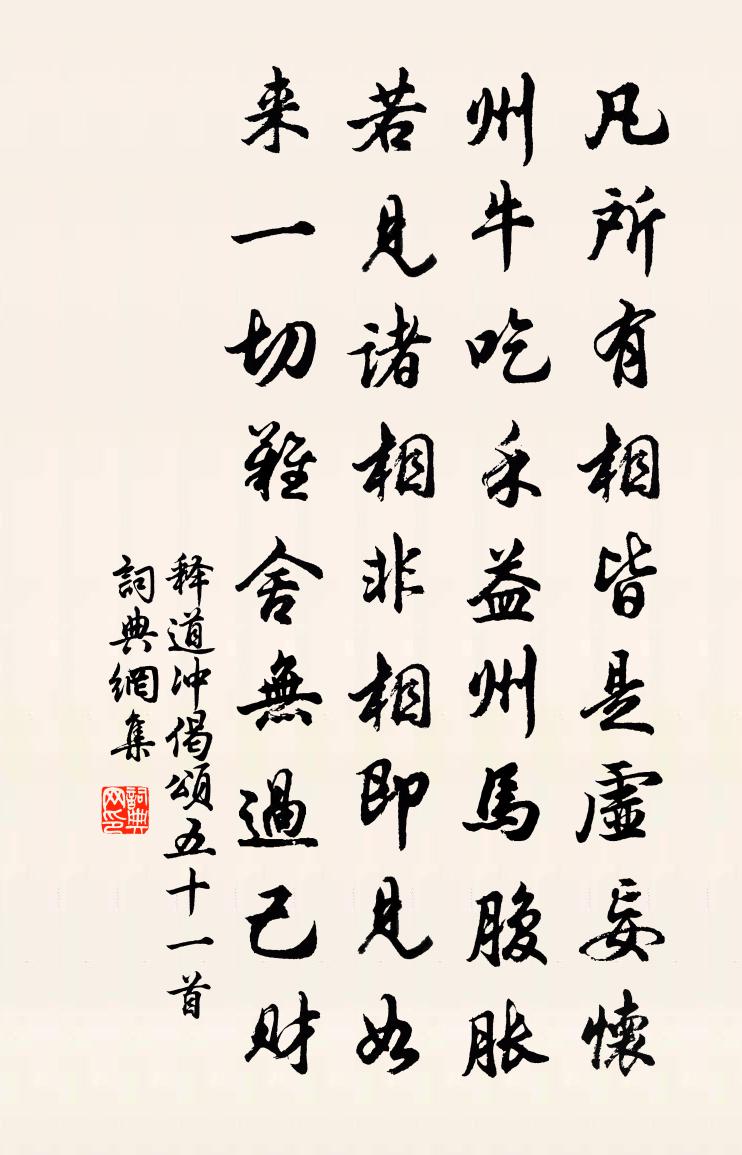 凡所有相皆是虚妄懷
州牛吃禾益州馬腹脹
若見诸相非相即見如
来一切難舍無過己财
释道冲偈頌五十一首
詞典網集
詞典网印